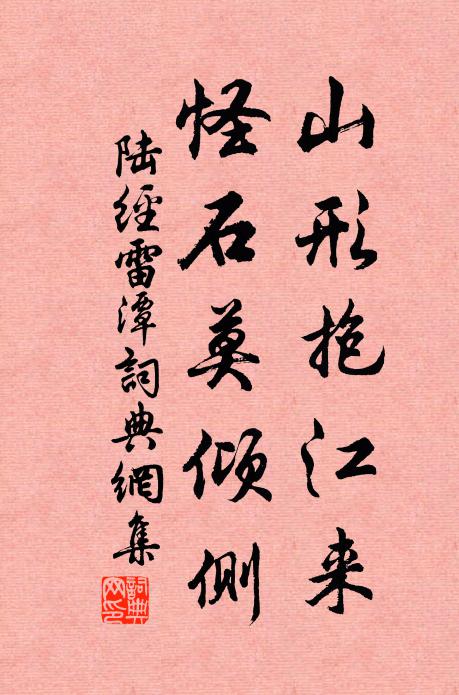 山形抱江来
怪石莫倾侧
陆經雷潭詞典網集
詞典
网印